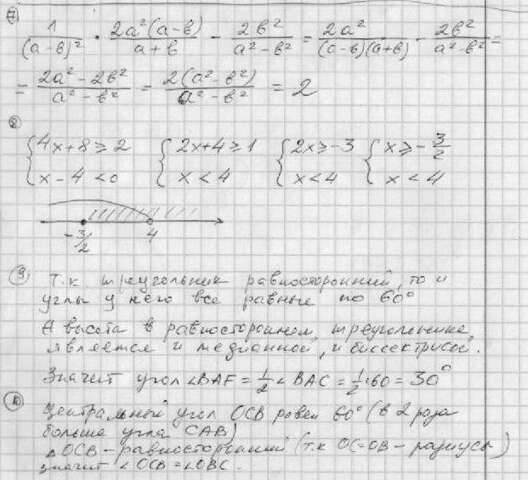 7) 1/(a-b)² · 2a²(a-b)/(a+b) - 2b²/(a²-b²) = 2a²/((a-b)(a+b)) - 2b²/(a²-b²) =
= (2a²-2b²)/(a²-b²) = 2(a²-b²)/(a²-b²) = 2
8 {4x+8≥2 {2x+4≥1 {2x≥-3 {x≥-3/2
{x-4<0 {x<4 {x<4 {x<4
-3/2 4
9) Т.к треугольник равносторонний, то и
углы у него все равные по 60°
А высота в равностороннем треугольнике
является и медианной, и биссектрисой.
Значит угол ∠BAF = 1/2 ∠BAC = 1/2·60 = 30°
10 Центральный угол OCB равен 60° (в 2 раза
больше угла CAB)
△OCB - равносторонний (т.к OC=OB - радиусы)
значит ∠OCB = ∠OBC.